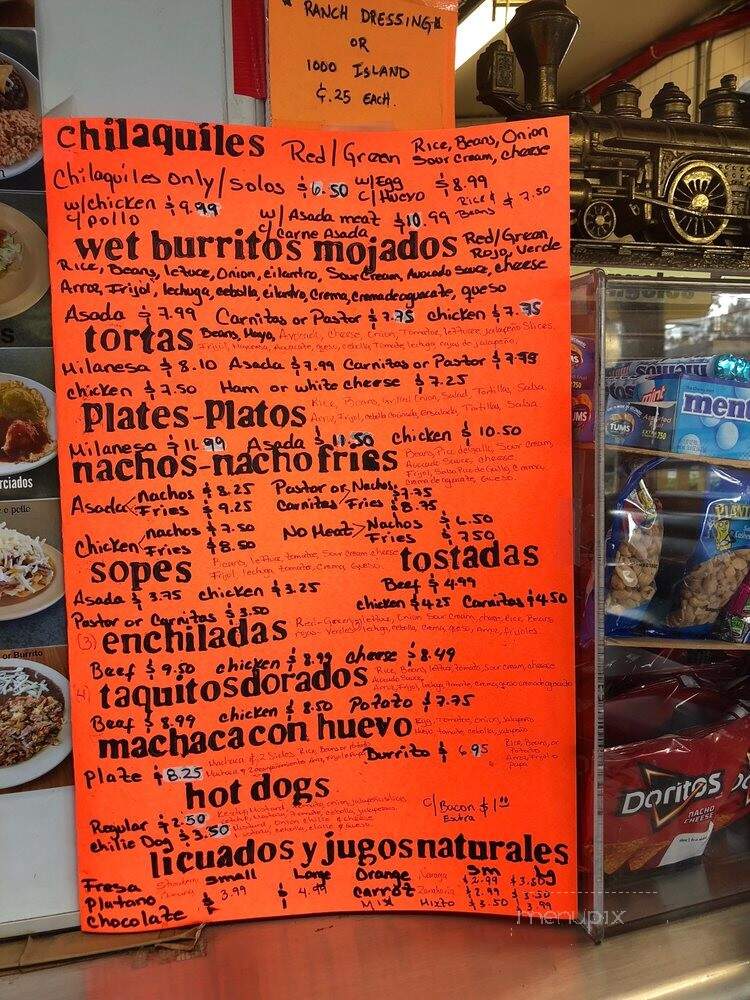 RANCH DRESSING
OR
1000 ISLAND
¢.25 EACH.
chilaquiles Red/Green Rice, Beans, Onion
Sour cream, cheese
Chilaquiles Only/Solos $6.50 w/Egg $8.99
c/Huevo
w/chicken $9.99 Rice & $7.50
c/pollo w/Asada meat $10.99 Beans
c/Carne Asada
wet burritos mojados Red/Green
Rojo, Verde
Rice, Beans, letuce, Onion, cilantro, Sour Cream, Avocado Sauce, cheese
Arroz, Frijol, lechuga, cebolla, cilantro, Crema, Crema de aguacate, queso
Asada $7.99 Carnitas or Pastor $7.75 chicken $7.75
tortas Beans, Mayo, Avocado, cheese, Onion, Tomatoe, lettuce, jalapeño Slices.
Milanesa $8.10 Asada $7.99 Carnitas or Pastor $7.75
chicken $7.50 Ham or white cheese $7.25
plates-platos Rice, Beans, Grilled Onion, Salad, Tortillas, Salsa
Arroz, Frijol, cebolla Guisada, ensalada, Tortillas, Salsa
Milanesa $11.99 Asada $11.50 chicken $10.50
nachos-nacho fries Beans, Pico de gallo, Sour cream,
Avocado Sauce, cheese
Frijol, Salsa Pico de Gallo, Crema,
Crema de aguacate, Queso.
Asada nachos $8.25 Pastor or Nachos $7.75
Fries $9.25 Carnitas Fries $8.75
Chicken nachos $7.50 No Meat Nachos $6.50
Fries $8.50 Fries $7.50
sopes Beans, lettuce, tomatoe, Sour cream cheese
Frijol, lechuga, tomate, Crema, Queso
tostadas
Asada $3.75 chicken $3.25 Beef $4.99
Pastor or Carnitas $3.50 chicken $4.25 Carnitas $4.50
(3) enchiladas Red-Green lettuce, Onion Sour cream, cheese, Rice, Beans
Rojas-Verdes lechuga, cebolla, crema, queso, arroz, frijoles.
Beef $9.50 chicken $8.99 cheese $8.49
(4) taquitos dorados Rice, Beans, lettuce, tomato, Sour cream, cheese
Avocado Sauce
Beef $8.99 chicken $8.50 Potato $7.75
machaca con huevo Egg, Tomatoe, onion, jalapeño
Huevo, tomate, cebolla, jalapeño
Plate $8.25 Machaca & 2 Sides Rice, Beans or potato
Burrito $6.95 Rice, Beans, or
potatoe
Arroz, Frijol o
papa
hot dogs
Regular $2.50 c/Bacon $1.00
Extra
chilie Dog $3.50
licuados y jugos naturales
Fresa small Large Orange Naranja sm lg
Platano $3.99 $4.99 Carrot Zanahoria
Chocolate Mix Mixto $3.50 $3.99
Doritos
NACHO
CHEESE
TUMS
ment
menupix